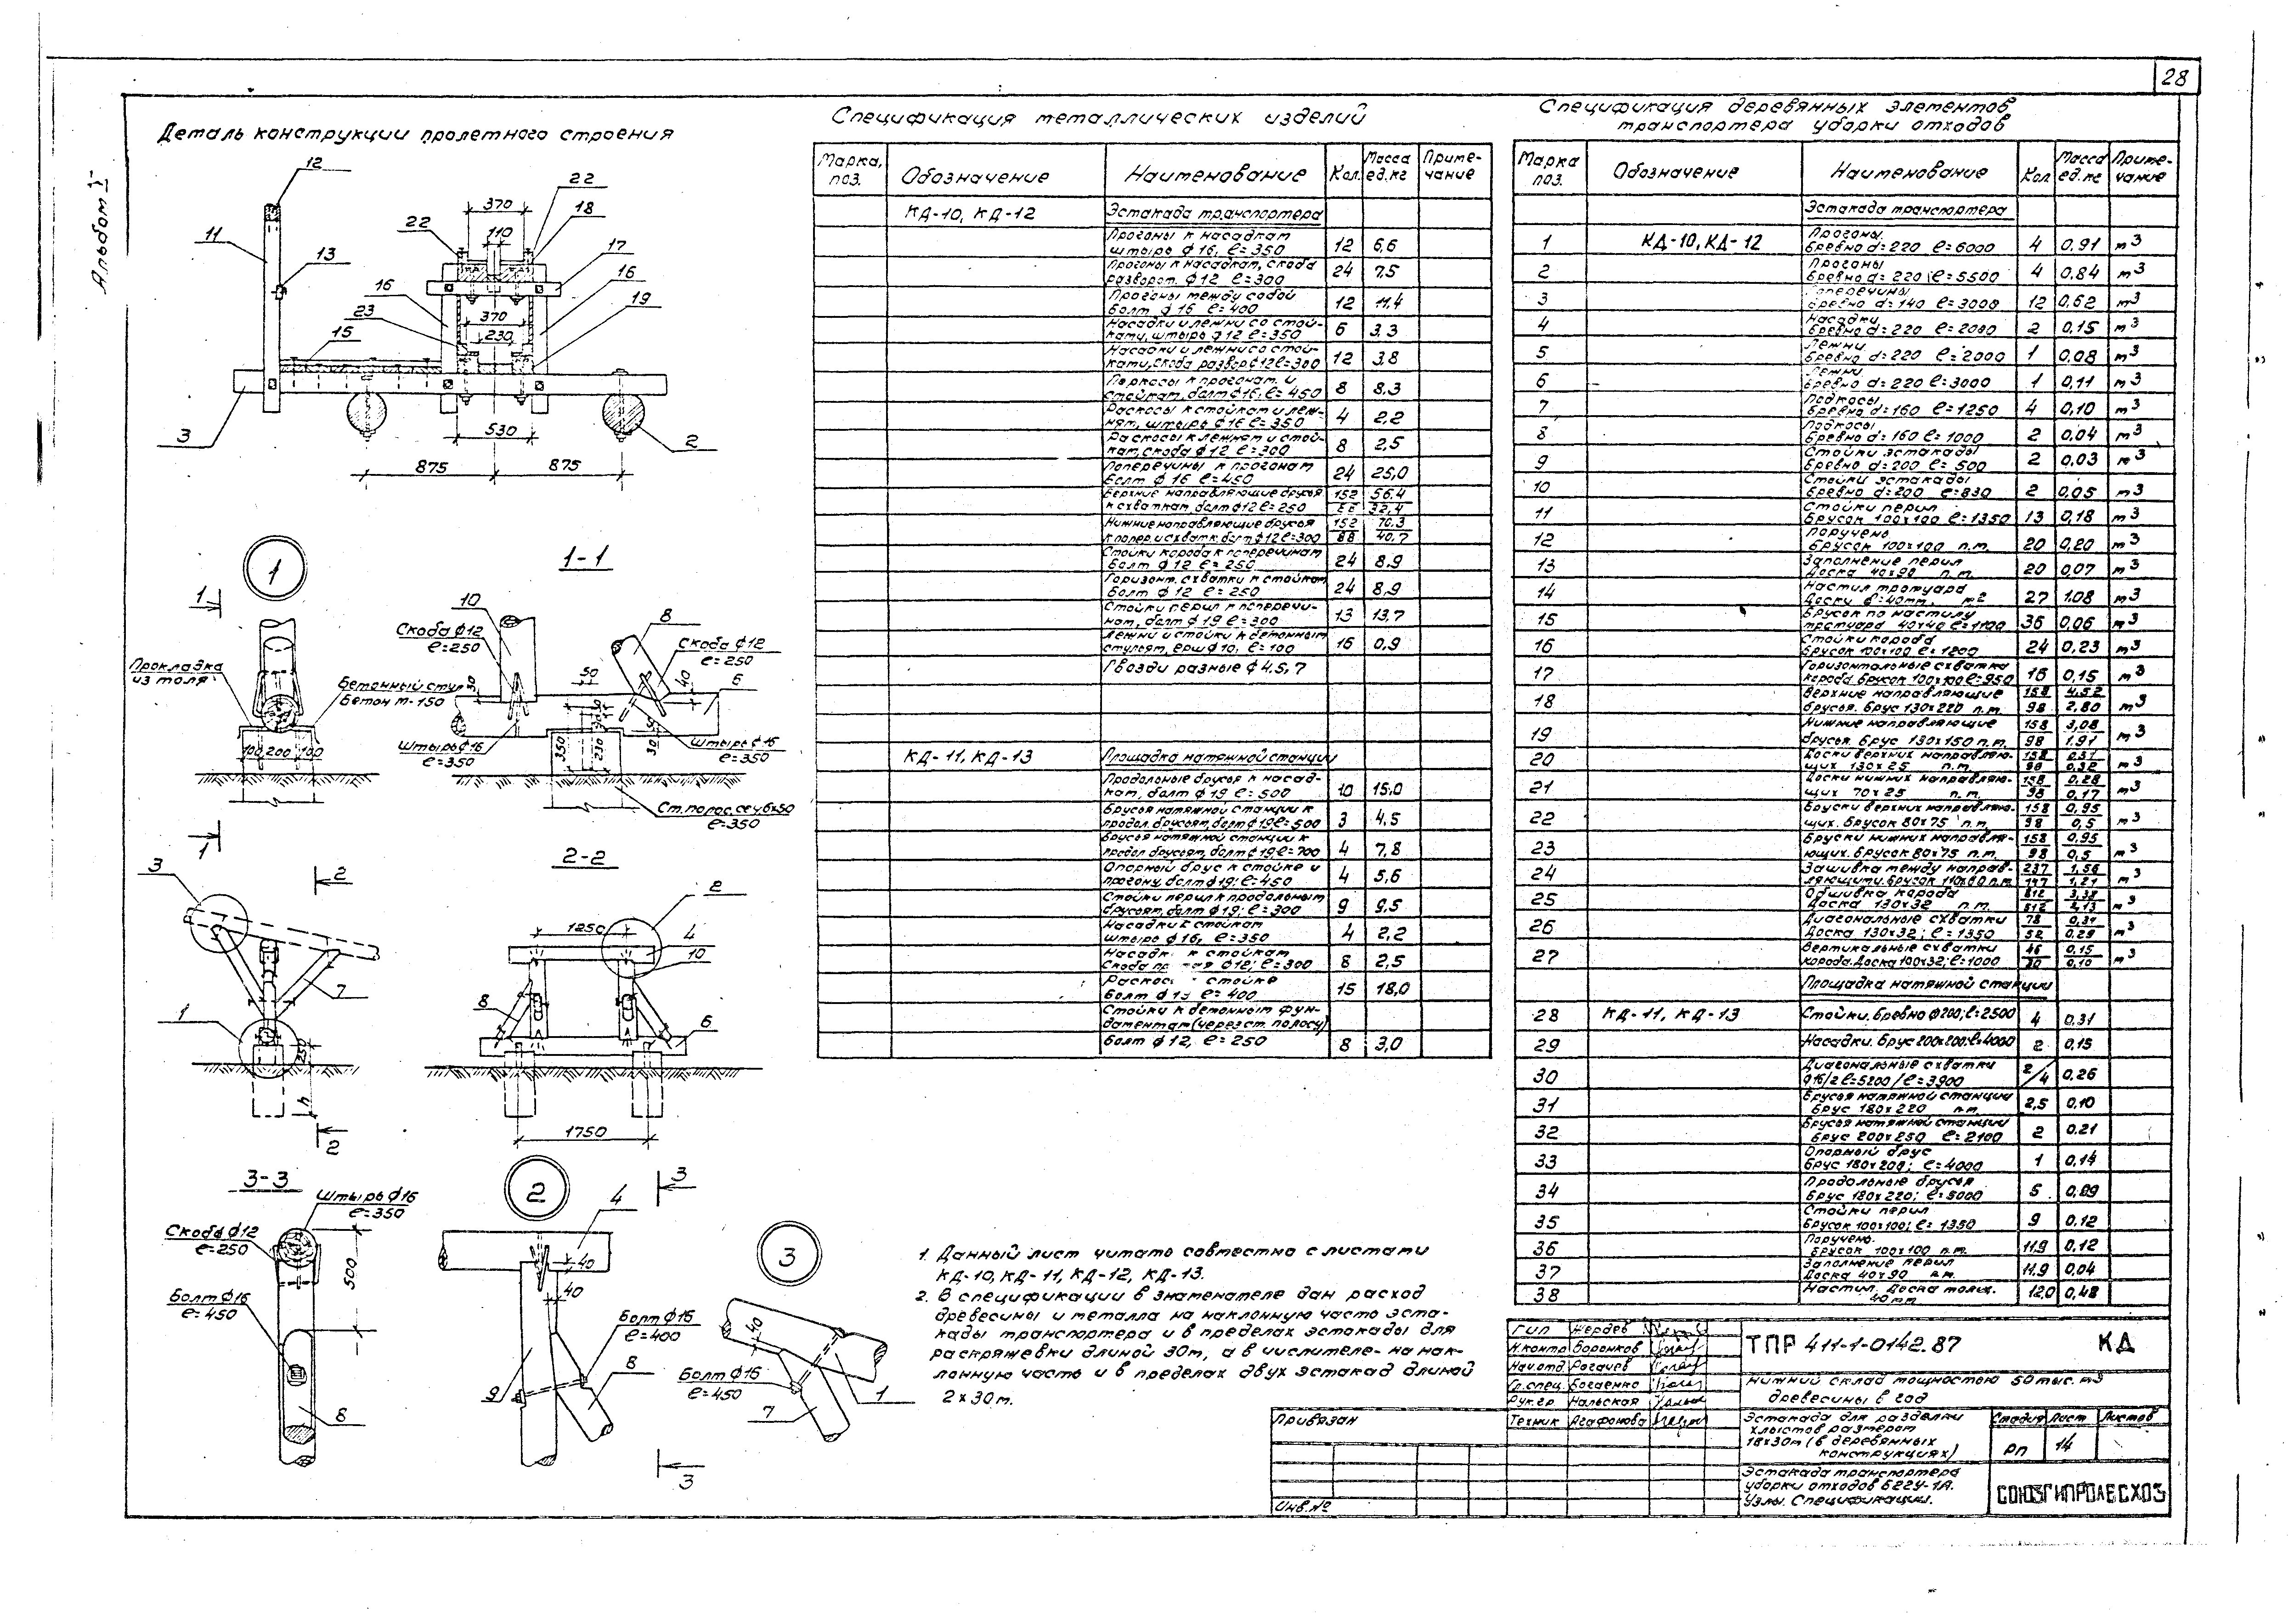 28
Альбом V
Деталь конструкции пролетного строения
12
22
370
18
22
110
17
11
13
16
16
19
23
370
15
230
3
530
2
875
875
1
1-1
1
10
8
Скоба ф12
ℓ=250
Скоба ф12
ℓ=250
Прокладка
из толя
Бетонный стул
Бетон м-150
30
50
40
6
100 200 100
Штырь ф16
ℓ=350
350
230
30
Штырь ф16
ℓ=350
Ст. полос. сеч. 6x50
ℓ=350
1
3
2
2-2
2
1250
4
10
7
8
6
1
250
h
2
1750
3-3
Штырь ф16
ℓ=350
Скоба ф12
ℓ=250
500
Болт ф16
ℓ=450
8
2
3
4
40
40
Болт ф16
ℓ=400
8
9
3
3
40
Болт ф16
ℓ=450
7
1
Спецификация металлических изделий
Марка, поз. Обозначение Наименование Кол. Масса ед.кг Приме-чание
КД-10, КД-12 Эстакада транспортера
Прогоны к насадкам
штырь ф 16, ℓ=350 12 6,6
Прогоны к насадкам, скоба
разворот. ф12 ℓ=300 24 7,5
Прогоны между собой
болт ф 16 ℓ=400 12 11,4
Насадки и лежни со стой-
ками, штырь ф12 ℓ=350 6 3,3
Насадки и лежни со стой-
ками, скоба развор ф12 ℓ=300 12 3,8
Подкосы к прогонам и
стойкам, болт ф16, ℓ=450 8 8,3
Раскосы к стойкам и леж-
ням, штырь ф16 ℓ=350 4 2,2
Раскосы к лежням и стой-
кам, скоба ф12 ℓ=300 8 2,5
Поперечины к прогонам
болт ф 16 ℓ=450 24 25,0
Верхние направляющие брусья 152 56,4
к схваткам, болт ф12 ℓ=250 88 32,4
Нижние направляющие брусья 152 70,3
к попер. и схватк. болт ф12 ℓ=300 88 40,7
Стойки короба к поперечинам
болт ф 12 ℓ=250 24 8,9
Горизонт. схватки к стойкам
болт ф 12 ℓ=250 24 8,9
Стойки перил к поперечи-
нам, болт ф 19 ℓ=300 13 13,7
Лежни и стойки к бетонным
стульям, ерш ф10, ℓ=100 16 0,9
Гвозди разные ф 4,5,7
КД-11, КД-13 Площадка натяжной станции
Продольные брусья к насад-
кам, болт ф 19 ℓ=500 10 15,0
Брусья натяжной станции к
продол. брусьям, болт ф19 ℓ=500 3 4,5
Брусья натяжной станции к
продол брусьям, болт ф19, ℓ=700 4 7,8
Опорный брус к стойке и
прогону, болт ф19; ℓ=450 4 5,6
Стойки перил к продольным
брусьям, болт ф 19; ℓ=300 9 9,5
Насадки к стойкам
штырь ф16, ℓ=350 4 2,2
Насадк к стойкам
Скоба ф12; ℓ=300 8 2,5
Раскос стойке
болт ℓ=400 15 18,0
Стойки к бетонным фун-
даментам (через ст. полосу)
болт ф 12, ℓ=250 8 3,0
Спецификация деревянных элементов
транспортера уборки отходов
Марка поз. Обозначение Наименование Кол Масса ед. кг Приме-чание
Эстакада транспортера
1 КД-10, КД-12 Прогоны. бревно d=220 ℓ=6000 4 0,91 м3
2 Прогоны бревно d=220 ℓ=5500 4 0,84 м3
3 Поперечины бревно d=140 ℓ=3000 12 0,62 м3
4 Насадки бревно d=220 ℓ=2000 2 0,15 м3
5 Лежни бревно d=220 ℓ=2000 1 0,08 м3
6 Лежни бревно d=220 ℓ=3000 1 0,11 м3
7 Подкосы бревно d=160 ℓ=1250 4 0,10 м3
8 Подкосы бревно d=160 ℓ=1000 2 0,04 м3
9 Стойки эстакады бревно d=200 ℓ=500 2 0,03 м3
10 Стойки эстакады бревно d=200 ℓ=830 2 0,05 м3
11 Стойки перил Брусок 100x100 ℓ=1350 13 0,18 м3
12 Поручень Брусок 100x100 п.м. 20 0,20 м3
13 Заполнение перил Доска 40x90 п.м. 20 0,07 м3
14 Настил тротуара Доски б=40мм, м2 27 1,08 м3
15 Брусок по настилу тротуара 40x40 ℓ=1100 36 0,06 м3
16 Стойки короба Брусок 100x100 ℓ=1200 24 0,23 м3
17 Горизонтальные схватки короба. брусок 100x100 ℓ=950 16 0,15 м3
18 Верхние направляющие 158 4,52
брусья. Брус 130x220 п.м. 98 2,80 м3
19 Нижние направляющие 158 3,08
брусья. Брус 130x150 п.м. 98 1,91 м3
20 Доски верхних направляю- 158 0,51
щих 130x25 п.м. 98 0,32 м3
21 Доски нижних направляю- 158 0,28
щих 70x25 п.м. 98 0,17 м3
22 Бруски верхних направляю- 158 0,95
щих. Брусок 80x75 п.м. 98 0,5 м3
23 Бруски нижних направля- 158 0,95
ющих. Брусок 80x75 п.м. 98 0,5 м3
24 Зашивка между направ- 237 1,56
ляющими. Брусок 110x60 п.м. 147 1,21 м3
25 Обшивка короба 812 3,38
Доска 130x32 п.м. 512 2,13 м3
26 Диагональные схватки 78 0,31
Доска 130x32; ℓ=1350 52 0,29 м3
27 Вертикальные схватки 46 0,15
короба. Доска 100x32; ℓ=1000 30 0,10 м3
Площадка натяжной станции
28 КД-11, КД-13 Стойки. бревно ф200; ℓ=2500 4 0,31
29 Насадки. Брус 200x200; ℓ=4000 2 0,15
30 Диагональные схватки ф16/2 ℓ=5200/ℓ=3900 2/4 0,26
31 Брусья натяжной станции Брус 180x220 п.м. 2,5 0,10
32 Брусья натяжной станции Брус 200x250 ℓ=2100 2 0,21
33 Опорный брус Брус 180x200; ℓ=4000 1 0,14
34 Продольные брусья Брус 180x220; ℓ=5000 5 0,99
35 Стойки перил Брусок 100x100; ℓ=1350 9 0,12
36 Поручень. Брусок 100x100 п.м. 11,9 0,12
37 Заполнение перил Доска 40x90 п.м. 11,9 0,04
38 Настил. Доска толщ. 40 мм 12,0 0,48
1. Данный лист читать совместно с листами
КД-10, КД-11, КД-12, КД-13.
2. В спецификации в знаменателе дан расход
древесины и металла на наклонную часть эста-
кады транспортера и в пределах эстакады для
раскряжевки длиной 30м, а в числителе- на нак-
лонную часть и в пределах двух эстакад длиной
2x30м.
Гип Нердев
Н.контр Воронков
Нач.отд. Рогачев
Гл.спец. Богаенко
Рук.гр. Нальская
Техник Агафонова
ТПР 411-1-0142.87 КД
Нижний склад мощностью 50 тыс. м3
древесины в год
Эстакада для разделки
хлыстов размером
18x30м (в деревянных
конструкциях)
Стадия Лист Листов
РП 14
Эстакада транспортера
уборки отходов Б22У-1А.
Узлы. Спецификации.
СОЮЗГИПРОЛЕСХОЗ
Привязан
Инв.№